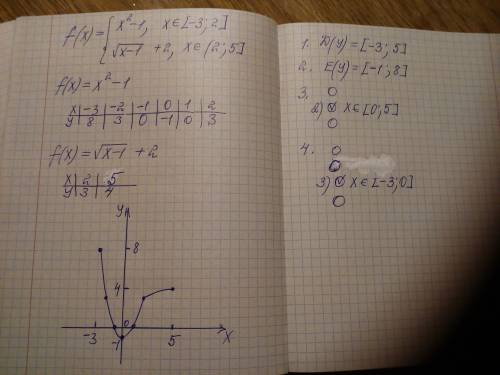 f(x) = { x²-1, x∈[-3; 2]
√x-1 + 2, x∈(2; 5]
f(x) = x²-1
x | -3 | -2 | -1 | 0 | 1 | 2
y | 8 | 3 | 0 | -1 | 0 | 3
f(x) = √x-1 + 2
x | 2 | 5
y | 3 | 4
y
8
4
-3 0 5 x
-1
1. D(y) = [-3; 5]
2. E(y) = [-1; 8]
3.
2) x∈[0; 5]
4.
3) x∈[-3; 0]